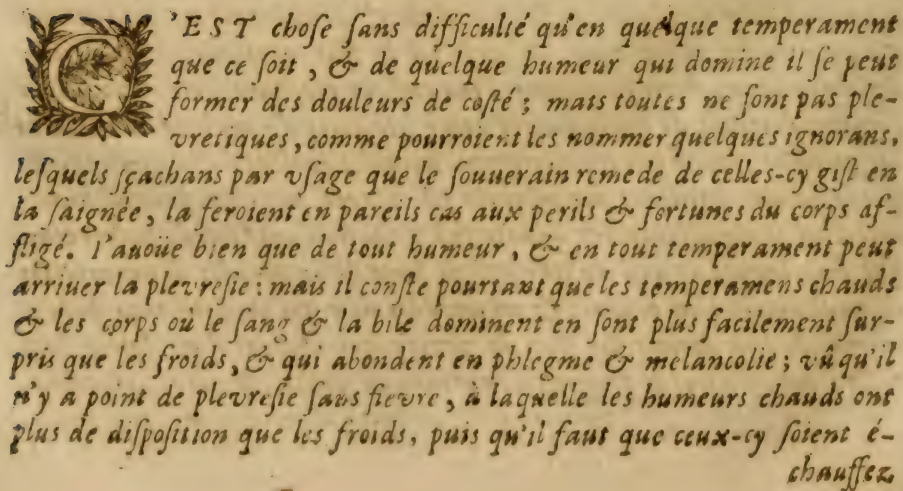 C'EST chose sans difficulté qu'en quelque temperament
que ce soit, & de quelque humeur qui domine il se peut
former des douleurs de costé; mais toutes ne sont pas ple-
vretiques, comme pourroient les nommer quelques ignorans,
lesquels sçachans par vsage que le souuerain remede de celles-cy gist en
la saignée, la feroient en pareils cas aux perils & fortunes du corps af-
fligé. I'auoüe bien que de tout humeur, & en tout temperament peut
arriuer la plevresie: mais il conste pourtant que les temperamens chauds
& les corps où le sang & la bile dominent en sont plus facilement sur-
pris que les froids, & qui abondent en phlegme & melancolie; vû qu'il
n'y a point de plevresie sans fievre, à laquelle les humeurs chauds ont
plus de disposition que les froids, puis qu'il faut que ceux-cy soient é-
chauffez